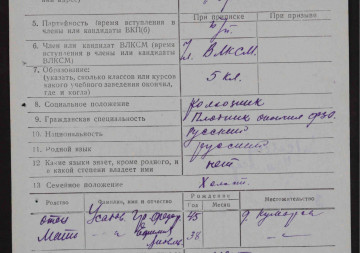 При приписке При призыве
5. Партейность (время вступления в члены или кандидаты ВКП(б) б/п.
6. Член или кандидат ВЛКСМ (время вступления в члены или кандидаты ВЛКСМ) Чл. ВЛКСМ.
7. Образование: (указать, сколько классов или курсов какого учебного заведения окончил, где и когда) 5 кл.
8. Социальное положение колхозник
9. Гражданская специальность Плотник окончил ФЗО.
10. Национальность русский
11. Родной язык русский
12. Какие языки знает, кроме родного, и в какой степени владеет ими нет
13 Семейное положение Холост.
Родство Фамилия, имя и отчество Рождения Местожительство
Год Месяц
отец 45 д.
Мать —"— 38 —"—